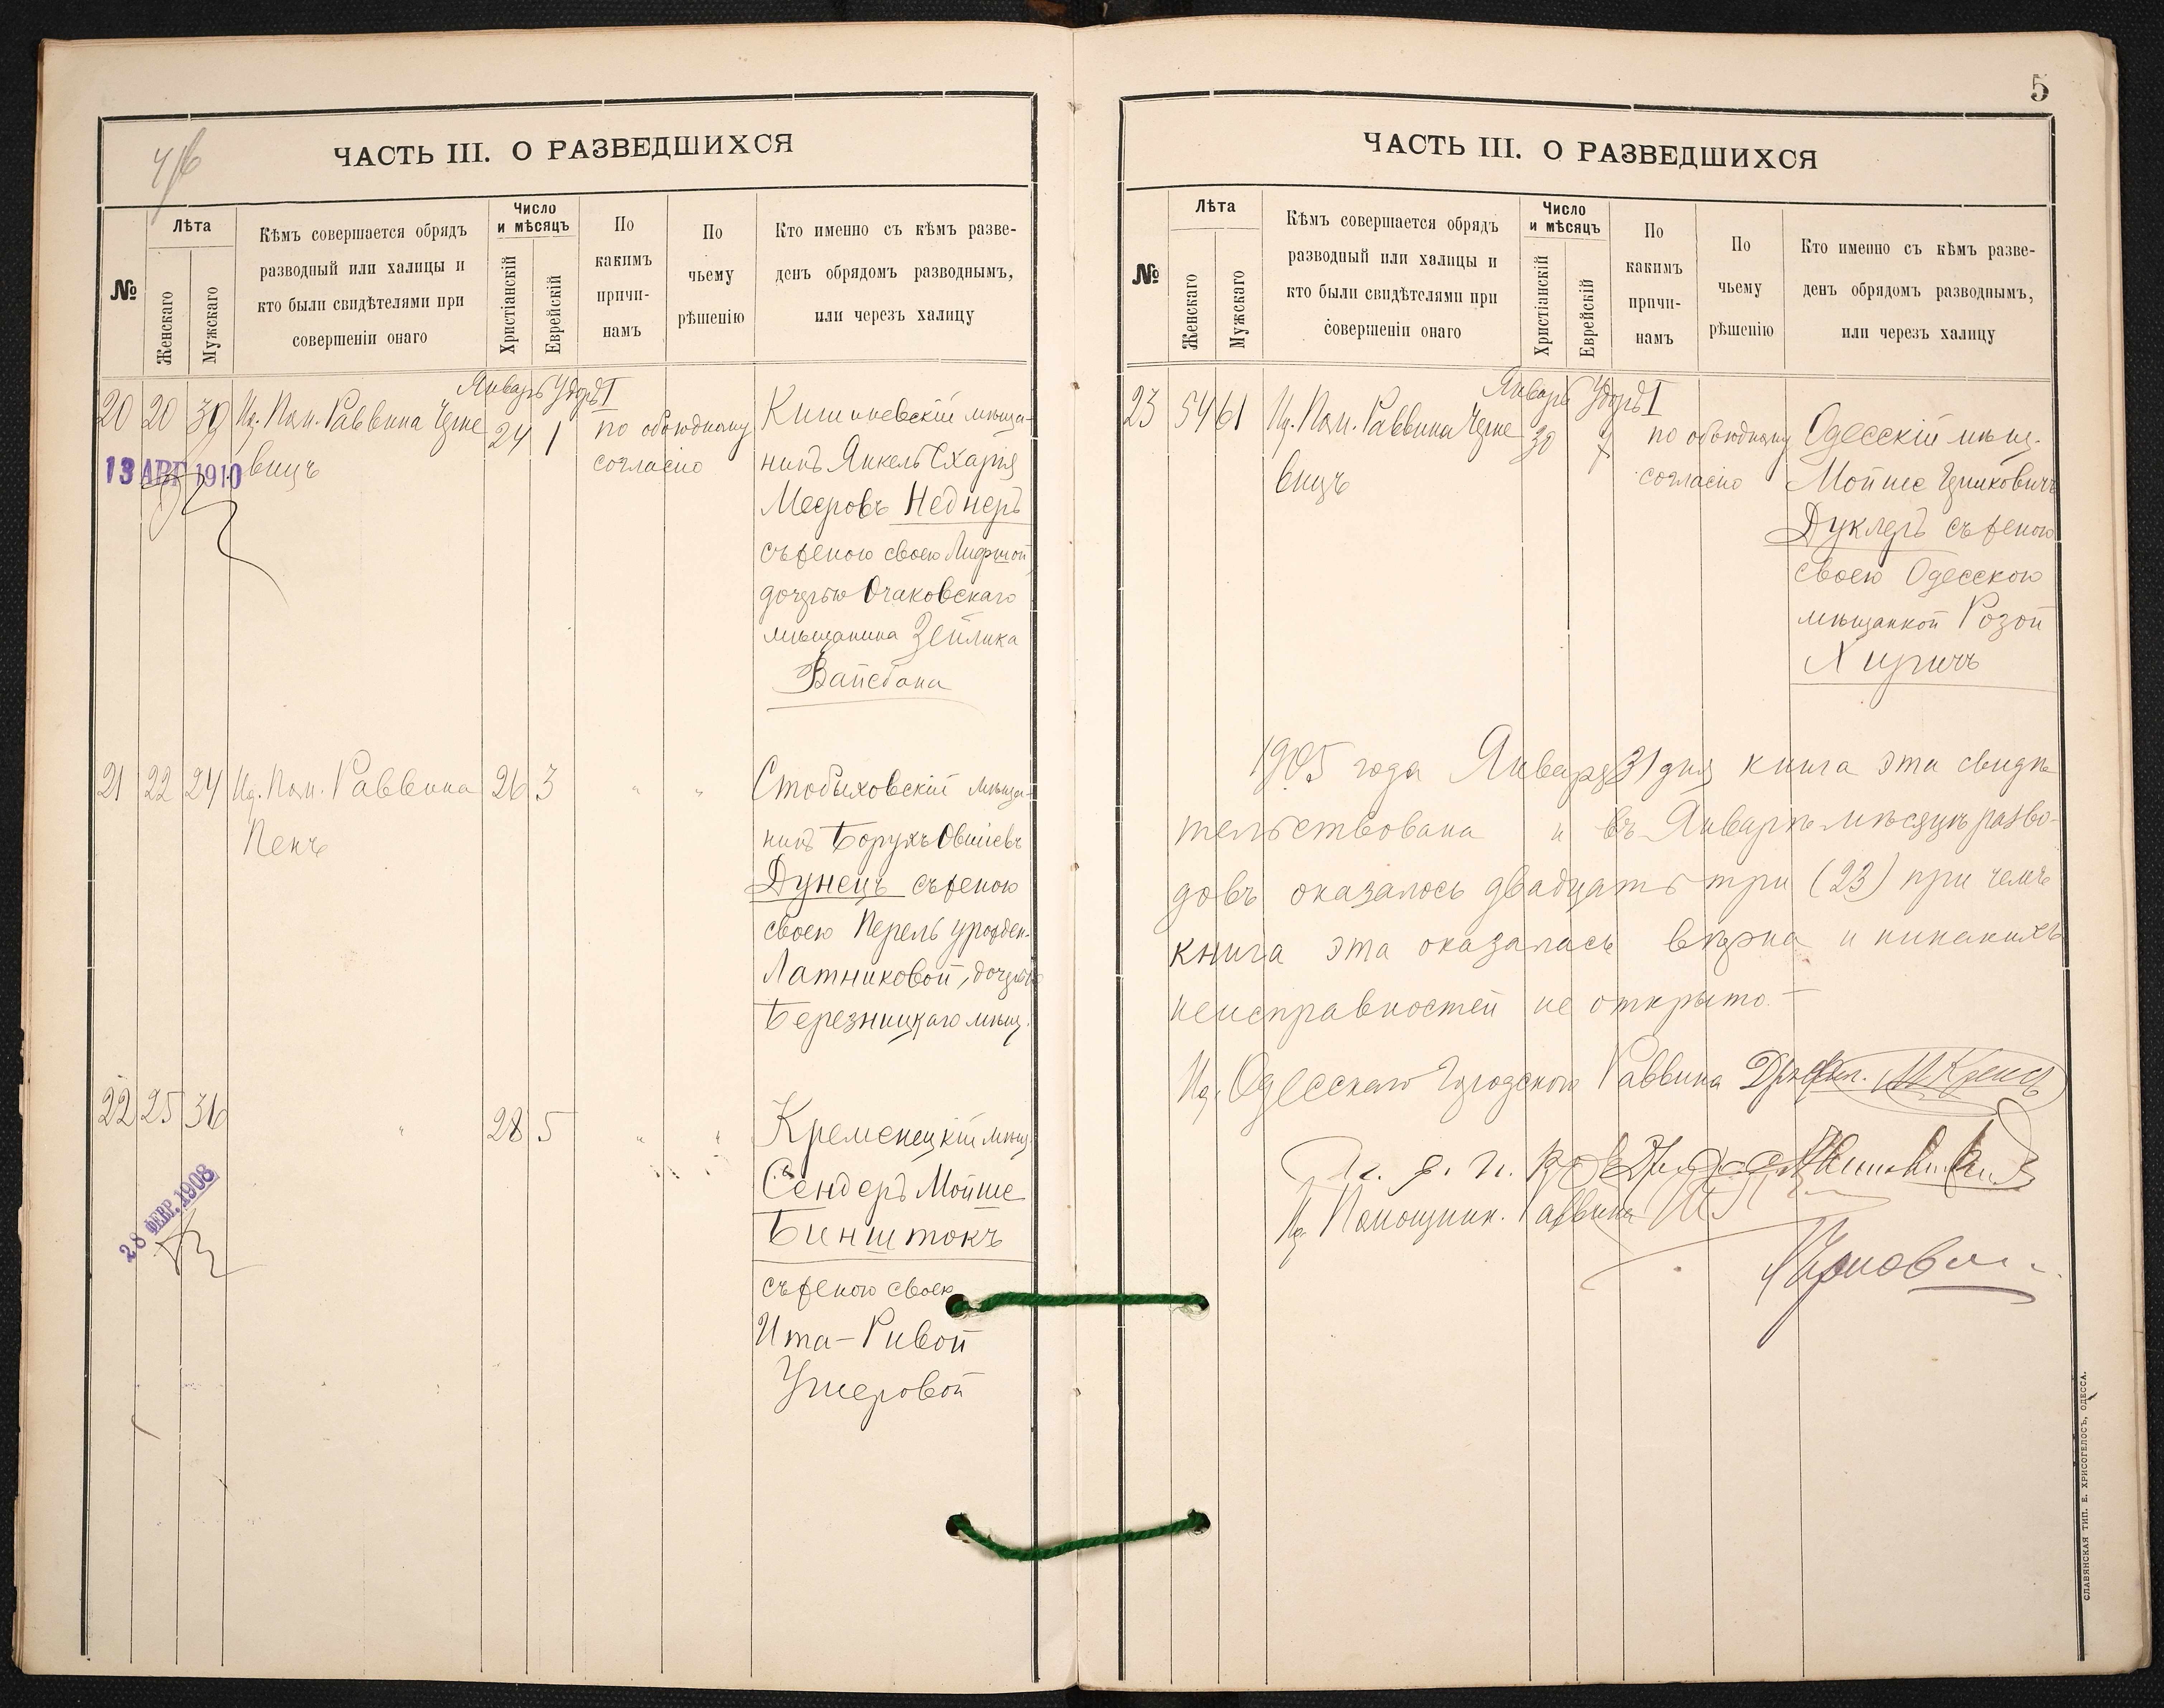 ЧАСТЬ III. О РАЗВЕДШИХСЯ
№
Лѣта
Женскаго
Мужскаго
Кѣмъ совершается обрядъ
разводный или халицы и
кто были свидѣтелями при
совершеніи онаго
Число
и мѣсяцъ
Христіанскій
Еврейскій
По
какимъ
причи-
намъ
По
чьему
рѣшенію
Кто именно съ кѣмъ разве-
денъ обрядомъ разводнымъ,
или черезъ халицу
Январь
20 20 39 Ид. Пом. Раввина Черно 24 1 по обоюдному
вицъ
согласію
13 АВГ 1910
Кишиневскій мѣща-
нинъ Янкель Схарія
Мееровъ Неднеръ
съ женою своею
дочерью Очаковскаго
мѣщанина Зейлика
21 22 24 Ид. Пом. Раввина 26 3 " "
Пенъ
Стобыховскій мѣща-
нинъ Борухъ Овшіевъ
Дунецъ съ женою
своею Перель урожден.
Латниковой, дочерью
Березницкаго мѣщ.
22 25 36 " 28 5 " "
28 ФЕВР. 1908
Кременецкій мѣщ.
Сендеръ Мойше
Бинштокъ
съ женою своею
Ита-Ривой
Ушеровой
5
ЧАСТЬ III. О РАЗВЕДШИХСЯ
№
Лѣта
Женскаго
Мужскаго
Кѣмъ совершается обрядъ
разводный или халицы и
кто были свидѣтелями при
совершеніи онаго
Число
и мѣсяцъ
Христіанскій
Еврейскій
По
какимъ
причи-
намъ
По
чьему
рѣшенію
Кто именно съ кѣмъ разве-
денъ обрядомъ разводнымъ,
или черезъ халицу
Январь
23 54 61 Ид. Пом. Раввина Черно 30 7 по обоюдному
вицъ
согласію
Одесскій мѣщ.
Мойше
Дуклеръ съ женою
своею Одесскою
мѣщанкой Розой
1905 года Января 31 дня книга эта свидѣ
тельствована и въ Январѣ мѣсяцѣ разво-
довъ оказалось двадцать три (23) при чемъ
книга эта оказалась вѣрна и никакихъ
неисправностей не открыто.—
Ид. Одесскаго Городского Раввина
Ид. Помощник. Раввина
СЛАВЯНСКАЯ ТИП. Е. ХРИСОГЕЛОСЪ, ОДЕССА.